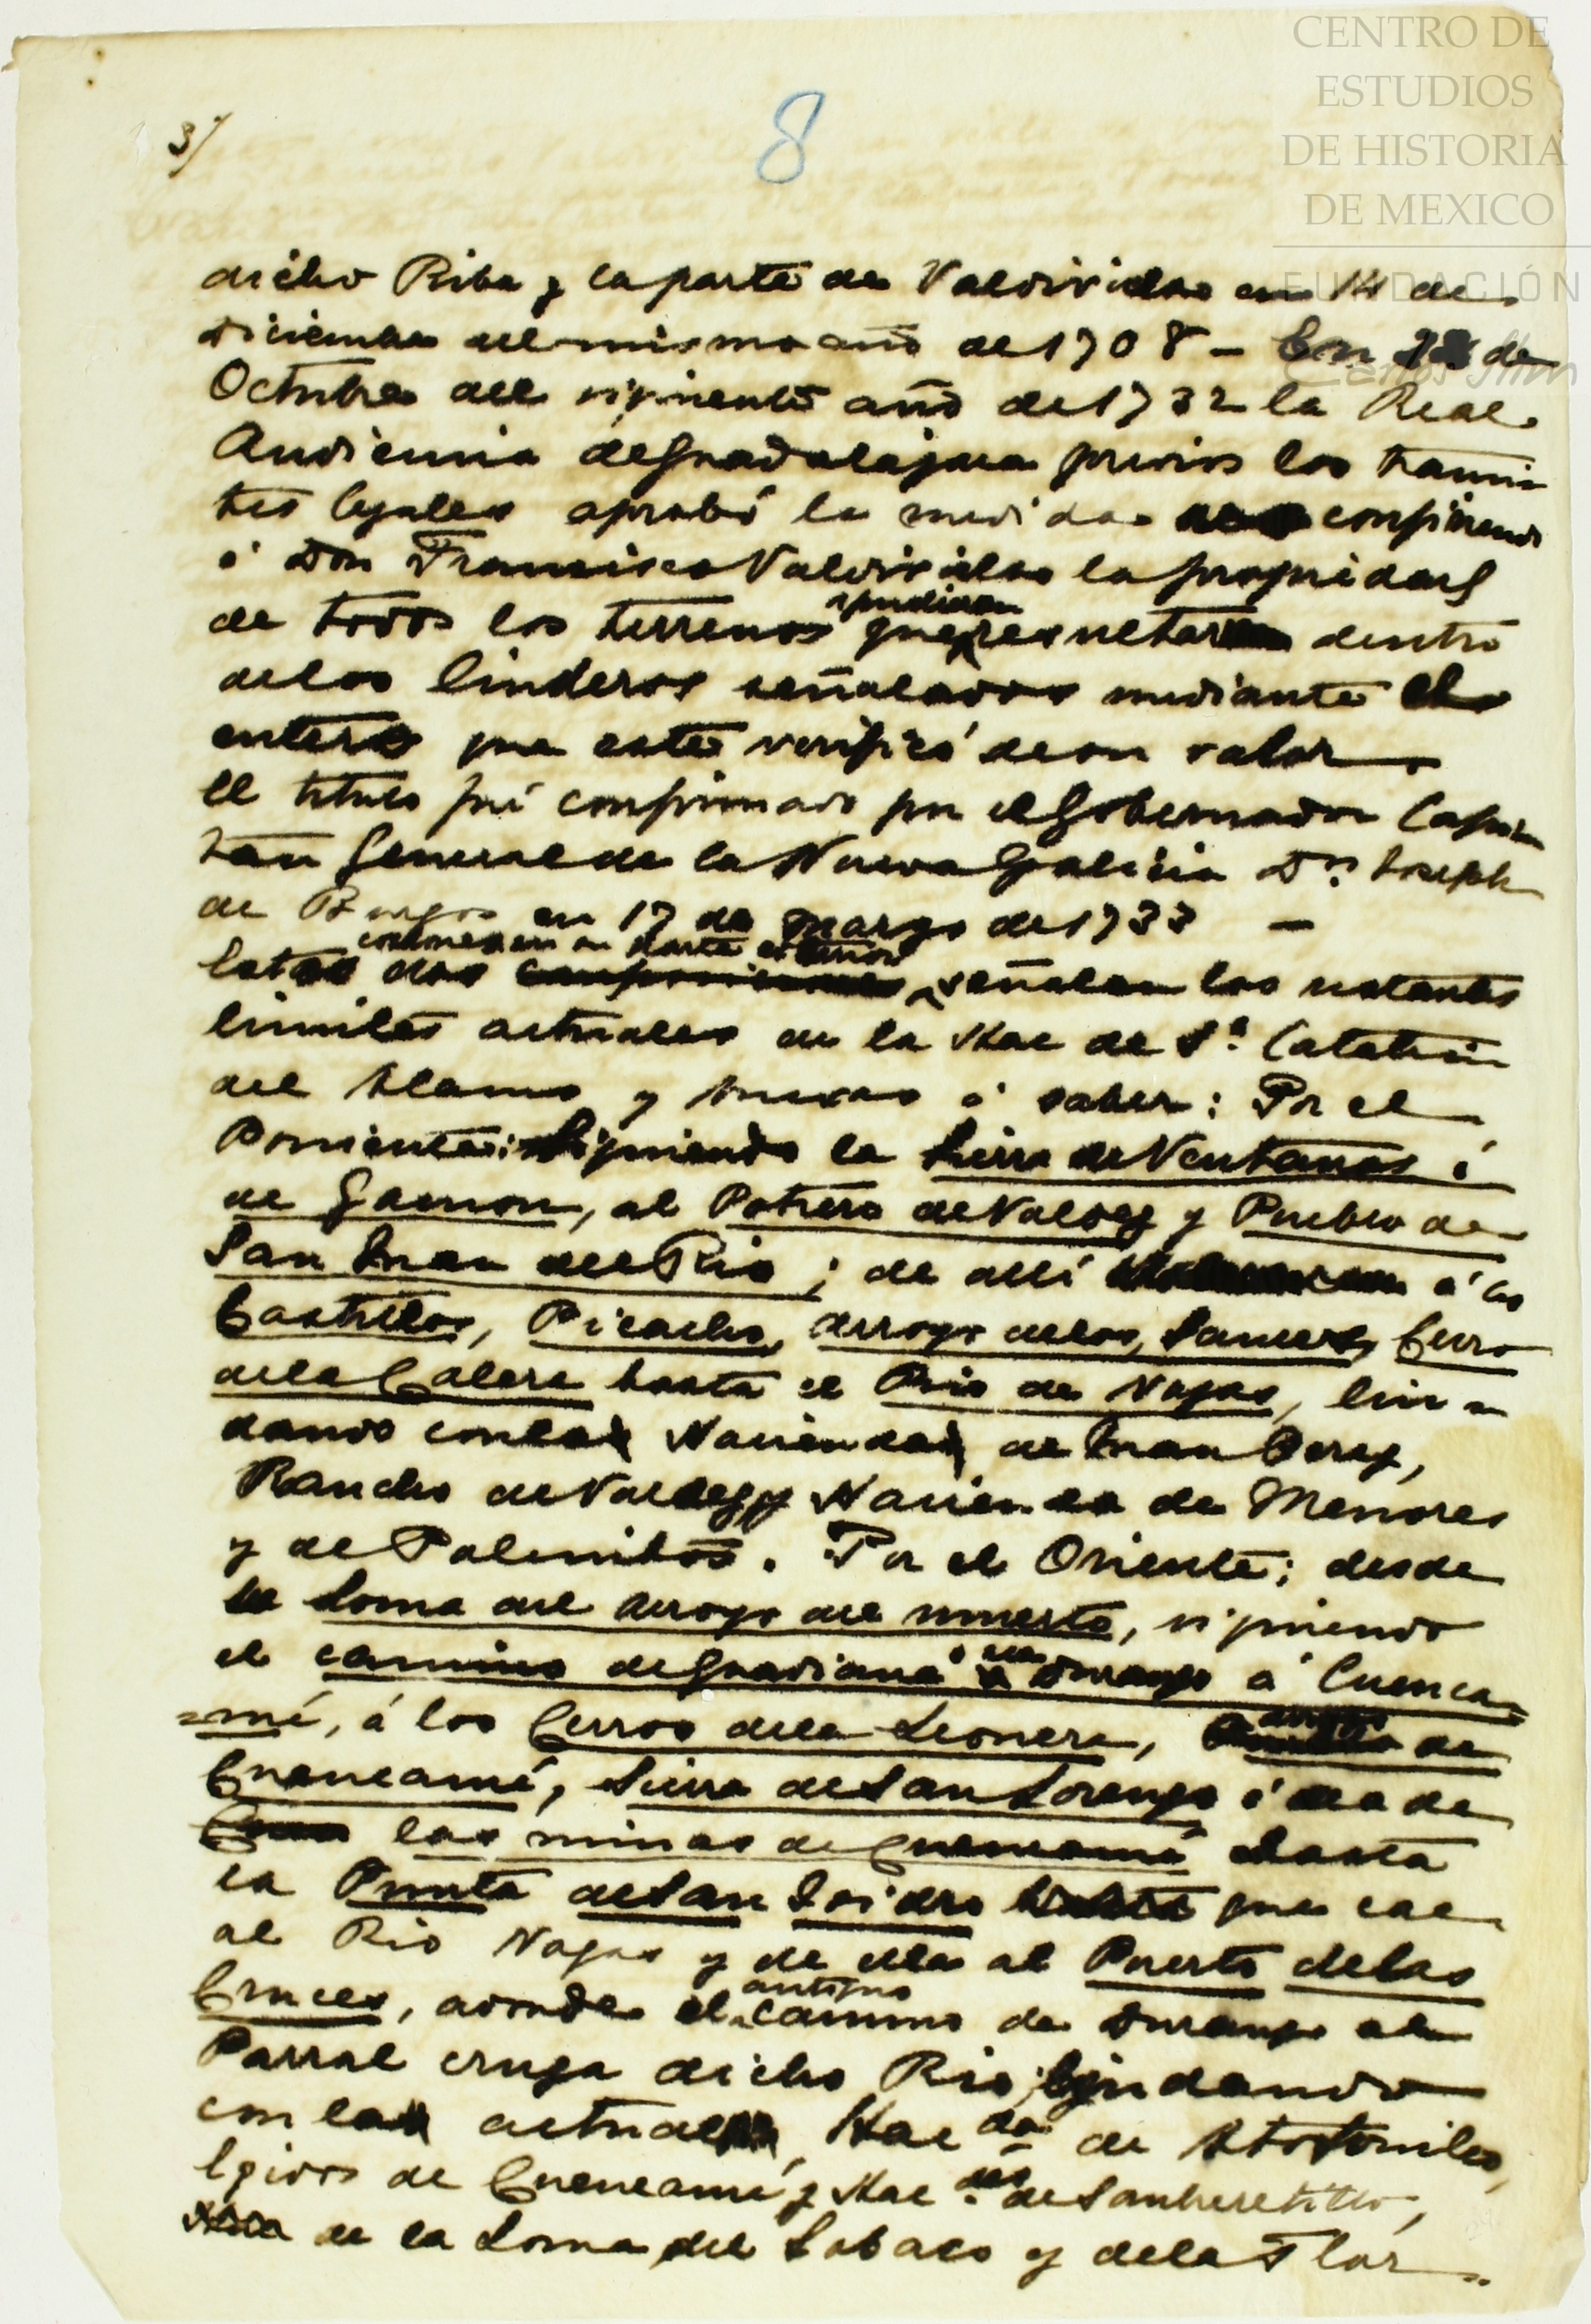 CENTRO DE
ESTUDIOS
DE HISTORIA
DE MEXICO
FUNDACIÓN
Carlos Slim
3/
8
dicho Riba y la parte de Valdivielso en 14 de
Diciembre del mismo año de 1708 - En 22 de
Octubre del siguiente año de 1732 la Real
Audiencia de Guadalajara previos los trami
tes legales aprobó la medida confiriendo
á Don Francisco Valdivielso la propiedad
de todos los terrenos que pudieran resultar dentro
de los linderos señalados mediante el
entero que este verificó de su valor
El titulo fué confirmado por el Gobernador Capi
tan General de la Nueva Galicia Dn. Joseph
de Burgos en 17 de Marzo de 1733 —
Estas dos composiciones señalan los restantes
limites actuales de la Hac de Sa. Catalina
del Alamo y anexas á saber: Por el
Poniente: Siguiendo la Sierra de Ventanas ó
de Gamon, al Potrero de Valdez y Pueblo de
San Juan del Rio; de allí á los
Castillos, Picacho, arroyo de los Sauces, Cerro
de la Calera hasta el Rio de Nazas, lin
dando con la Hacienda de Juan Perez,
Rancho de Valdez y Hacienda de Menores
y de Palmitos. Por el Oriente; desde
la Loma del Arroyo del muerto, siguiendo
el camino de Guadiana ó sea Durango á Cuenca
=mé, á los Cerros de la Leonera, arroyo de
Cuencamé, Sierra de San Lorenzo ó sea de
las minas de Cuencamé hasta
la Punta de San Isidro que cae
al Rio Nazas y de ella al Puerto de las
Cruces, adonde el antiguo camino de Durango al
Parral cruza dicho Rio, lindando
con la actual Hacda de Atotonilco,
Egidos de Cuencamé y Hacdas de Sombreretillo,
de la Loma, del Sobaco y de la Flor.